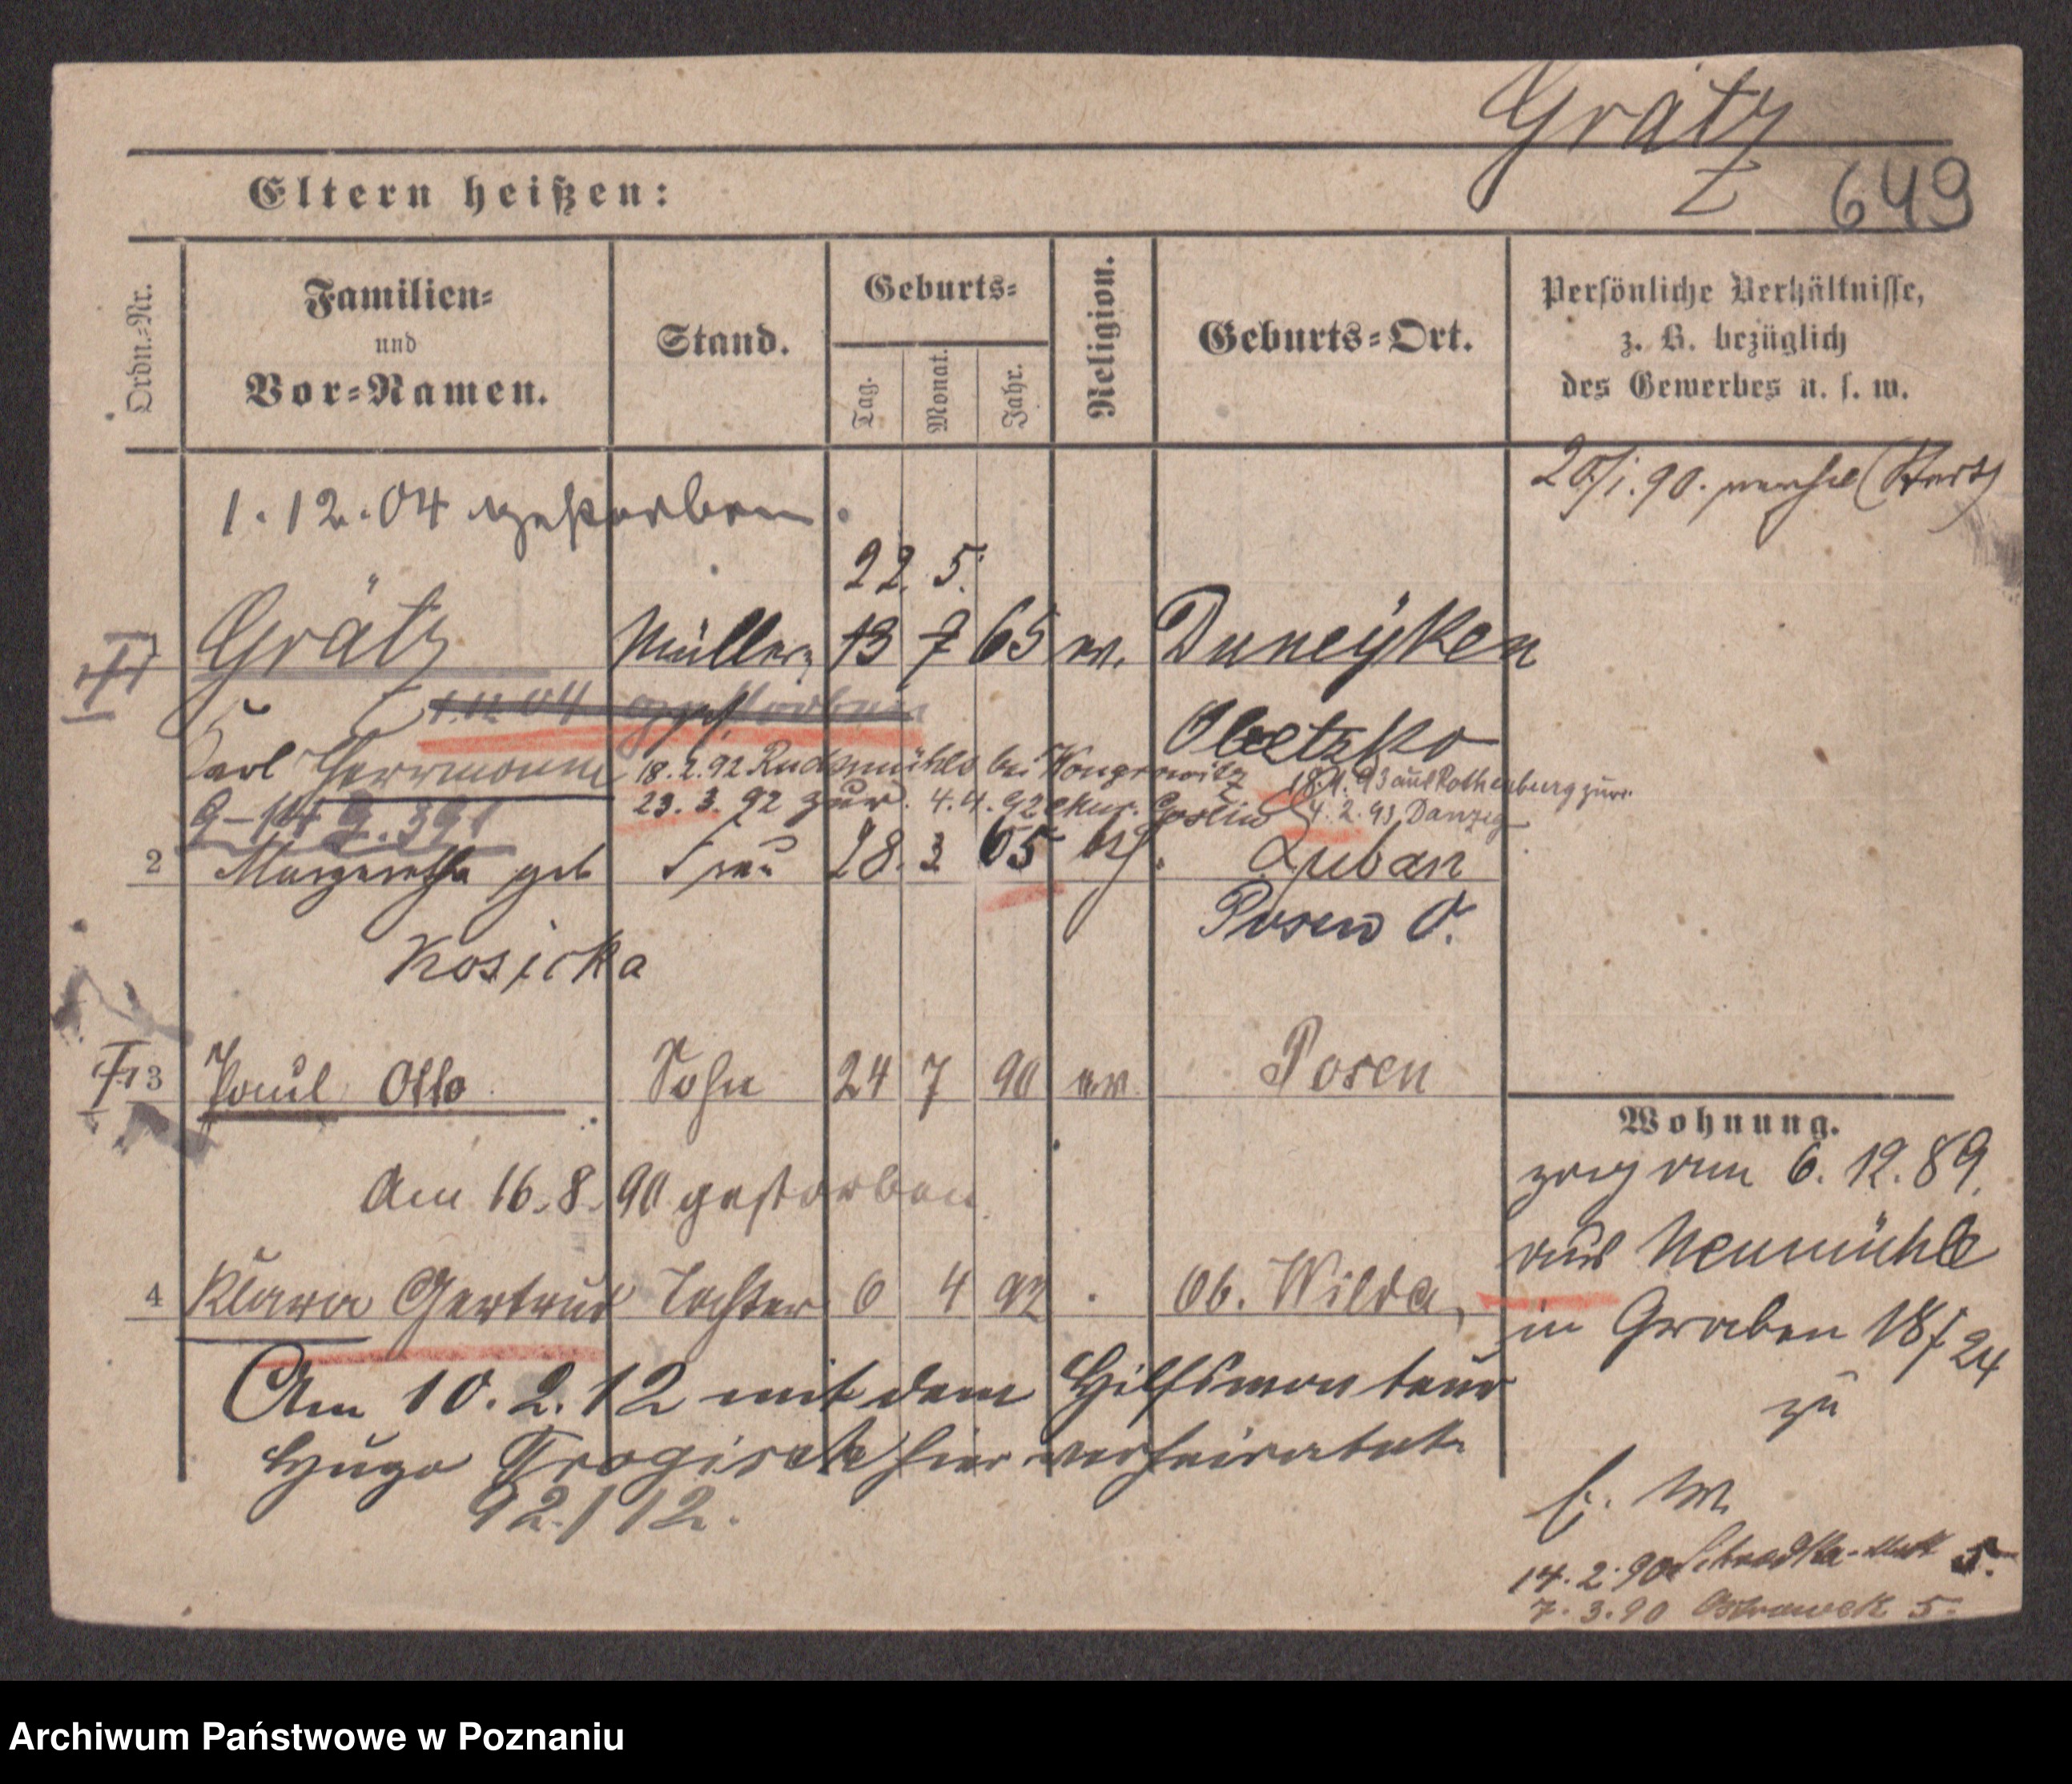 Grätz
Z 649
Eltern heißen:
Ordn.-Nr.
Familien-
und
Vor-Namen.
Stand.
Geburts-
Tag.
Monat.
Jahr.
Religion.
Geburts-Ort.
Persönliche Verhältnisse,
z. B. bezüglich
des Gewerbes u. s. w.
20/1.90.
1.12.04 gestorben.
22. 5.
Grätz Müller 13 7 65 ev. Duneyken
1.12.04 gestorben
Obetzko
Karl Herrmann 18.2.92 bei Wongrowitz 18.1.93 aus Rothenburg zur.
23.3.92 zur. 4.4.92 Goslin 4.2.93 Danzig
2 Margarethe geb Frau 28. 3 65 Luban
Posen O.
Kosicka
3 Paul Otto Sohn 24 7 90 ev Posen
Am 16.8.90 gestorben
4 Klara Gertrud Tochter 6 4 92 Ob. Wilda
Am 10.2.12 mit dem Hilfsmonteur
Hugo Trogisch hier verheiratet.
92/12.
Wohnung.
zog am 6.12.89.
aus Neumühle
in Graben 18/24
zu
E. W.
14.2.90 Schrodka 5.
7.3.90 Ostrowek 5.
Archiwum Państwowe w Poznaniu